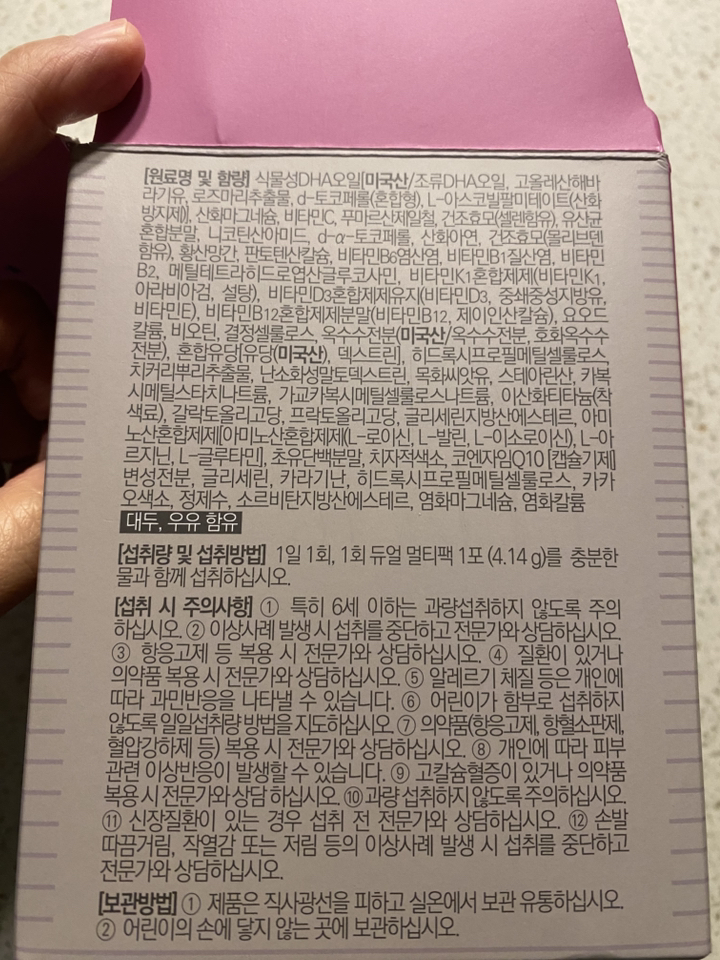 [원료명 및 함량] 식물성DHA오일[미국산/조류DHA오일, 고올레산해바
라기유, 로즈마리추출물, d-토코페롤(혼합형), L-아스코빌팔미테이트(산화
방지제)], 산화마그네슘, 비타민C, 푸마르산제일철, 건조효모(셀렌함유), 유산균
혼합분말, 니코틴산아미드, d-α-토코페롤, 산화아연, 건조효모(몰리브덴
함유), 황산망간, 판토텐산칼슘, 비타민B6염산염, 비타민B1질산염, 비타민
B2, 메틸테트라히드로엽산글루코사민, 비타민K1혼합제제(비타민K1,
아라비아검, 설탕), 비타민D3혼합제제유지(비타민D3, 중쇄중성지방유,
비타민E), 비타민B12혼합제제분말(비타민B12, 제이인산칼슘), 요오드
칼륨, 비오틴, 결정셀룰로스, 옥수수전분(미국산/옥수수전분, 호화옥수수
전분), 혼합유당[유당(미국산), 덱스트린], 히드록시프로필메틸셀룰로스,
치커리뿌리추출물, 난소화성말토덱스트린, 목화씨앗유, 스테아린산, 카복
시메틸스타치나트륨, 가교카복시메틸셀룰로스나트륨, 이산화티타늄(착
색료), 갈락토올리고당, 프락토올리고당, 글리세린지방산에스테르, 아미
노산혼합제제[아미노산혼합제제(L-로이신, L-발린, L-이소로이신), L-아
르지닌, L-글루타민], 초유단백분말, 치자적색소, 코엔자임Q10 [캡슐기제]
변성전분, 글리세린, 카라기난, 히드록시프로필메틸셀룰로스, 카카
오색소, 정제수, 소르비탄지방산에스테르, 염화마그네슘, 염화칼륨
대두, 우유 함유
[섭취량 및 섭취방법] 1일 1회, 1회 듀얼 멀티팩 1포 (4.14 g)를 충분한
물과 함께 섭취하십시오.
[섭취 시 주의사항] ① 특히 6세 이하는 과량섭취하지 않도록 주의
하십시오. ② 이상사례 발생 시 섭취를 중단하고 전문가와 상담하십시오.
③ 항응고제 등 복용 시 전문가와 상담하십시오. ④ 질환이 있거나
의약품 복용 시 전문가와 상담하십시오. ⑤ 알레르기 체질 등은 개인에
따라 과민반응을 나타낼 수 있습니다. ⑥ 어린이가 함부로 섭취하지
않도록 일일섭취량 방법을 지도하십시오. ⑦ 의약품(항응고제, 항혈소판제,
혈압강하제 등) 복용 시 전문가와 상담하십시오. ⑧ 개인에 따라 피부
관련 이상반응이 발생할 수 있습니다. ⑨ 고칼슘혈증이 있거나 의약품
복용 시 전문가와 상담 하십시오. ⑩ 과량 섭취하지 않도록 주의하십시오.
⑪ 신장질환이 있는 경우 섭취 전 전문가와 상담하십시오. ⑫ 손발
따끔거림, 작열감 또는 저림 등의 이상사례 발생 시 섭취를 중단하고
전문가와 상담하십시오.
[보관방법] ① 제품은 직사광선을 피하고 실온에서 보관 유통하십시오.
② 어린이의 손에 닿지 않는 곳에 보관하십시오.